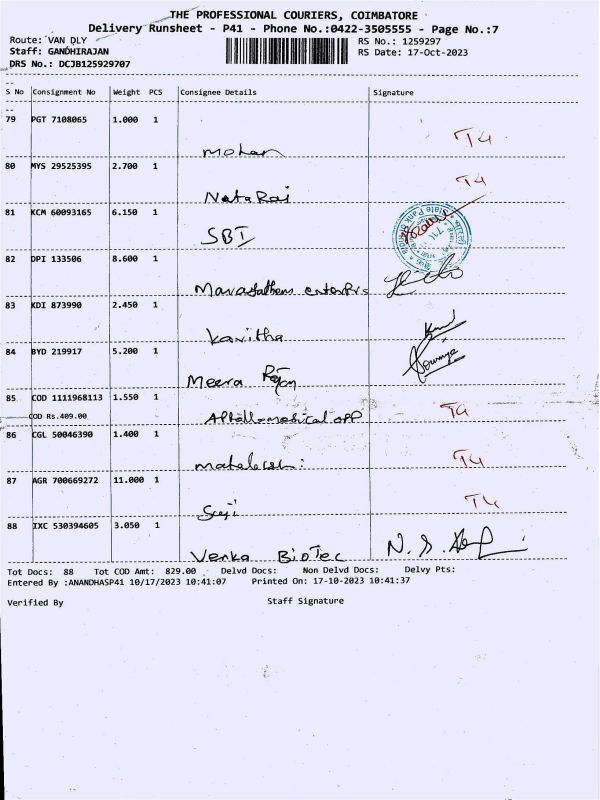 THE PROFESSIONAL COURIERS, COIMBATORE
Delivery Runsheet - P41 - Phone No.:0422-3505555 - Page No.:7
Route: VAN DLY RS No.: 1259297
Staff: GANDHIRAJAN RS Date: 17-Oct-2023
DRS No.: DCJB125929707
S No Consignment No Weight PCS Consignee Details Signature
79 PGT 7108065 1.000 1
mohan T4
80 MYS 29525395 2.700 1
NataRaj T4
81 KCM 60093165 6.150 1
SBI State Bank
82 DPI 133506 8.600 1
83 KDI 873990 2.450 1
Kavitha
84 BYD 219917 5.200 1
Meera Sowmya
85 COD 1111968113 1.550 1
COD Rs.409.00 medical opp T4
86 CGL 50046390 1.400 1
T4
87 AGR 700669272 11.000 1
T4
88 IXC 530394605 3.050 1
Venka BioTec
Tot Docs: 88 Tot COD Amt: 829.00 Delvd Docs: Non Delvd Docs: Delvy Pts:
Entered By :ANANDHASP41 10/17/2023 10:41:07 Printed On: 17-10-2023 10:41:37
Verified By Staff Signature